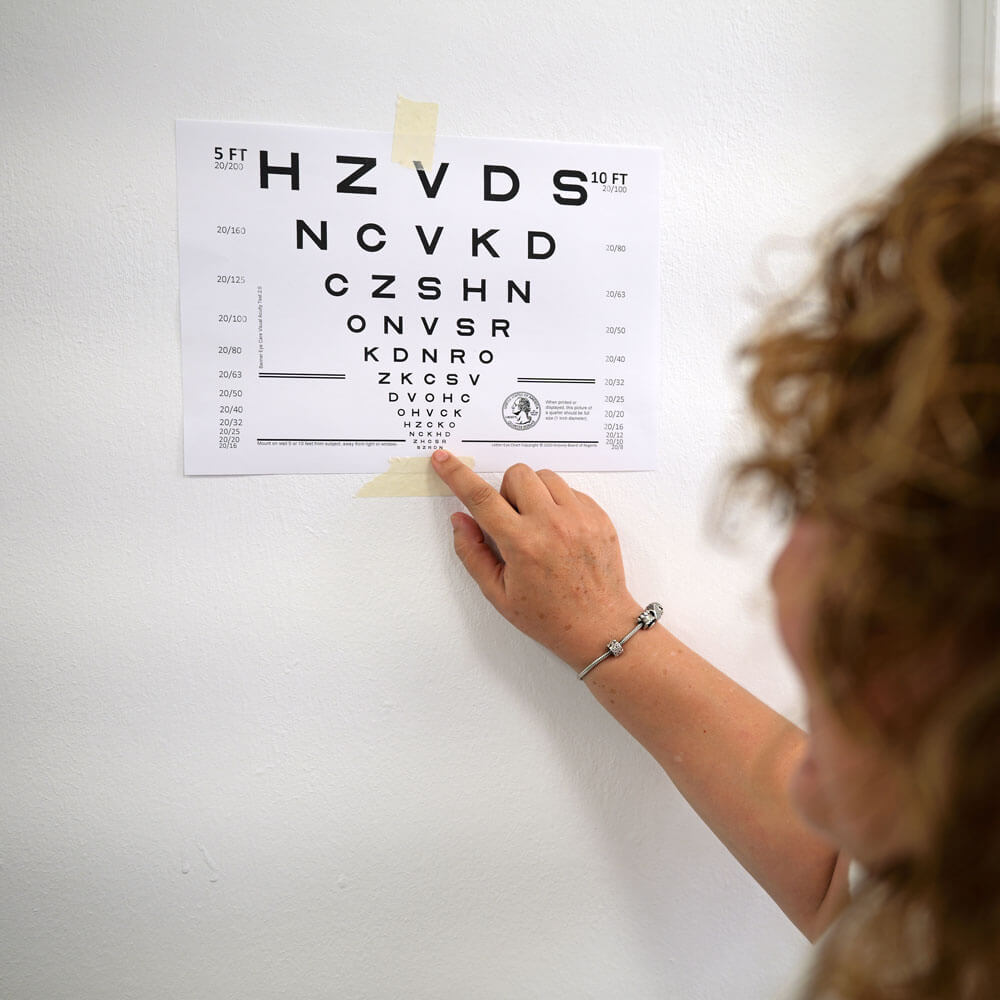 5 FT
20/200
H Z V D S
10 FT
20/100
20/160
N C V K D
20/80
20/125
C Z S H N
20/63
20/100
O N V S R
20/50
20/80
K D N R O
20/40
20/63
Z K C S V
20/32
20/50
D V O H C
20/25
20/40
O H V C K
20/20
20/32
H Z C K O
20/16
20/25
N C K H D
20/12
20/20
Z H C S R
20/10
20/16
S Z R D N
20/8
When printed or
displayed, this picture of
a quarter should be full
size (1 inch diameter).
Mount on wall 5 or 10 feet from subject, away from light or window.